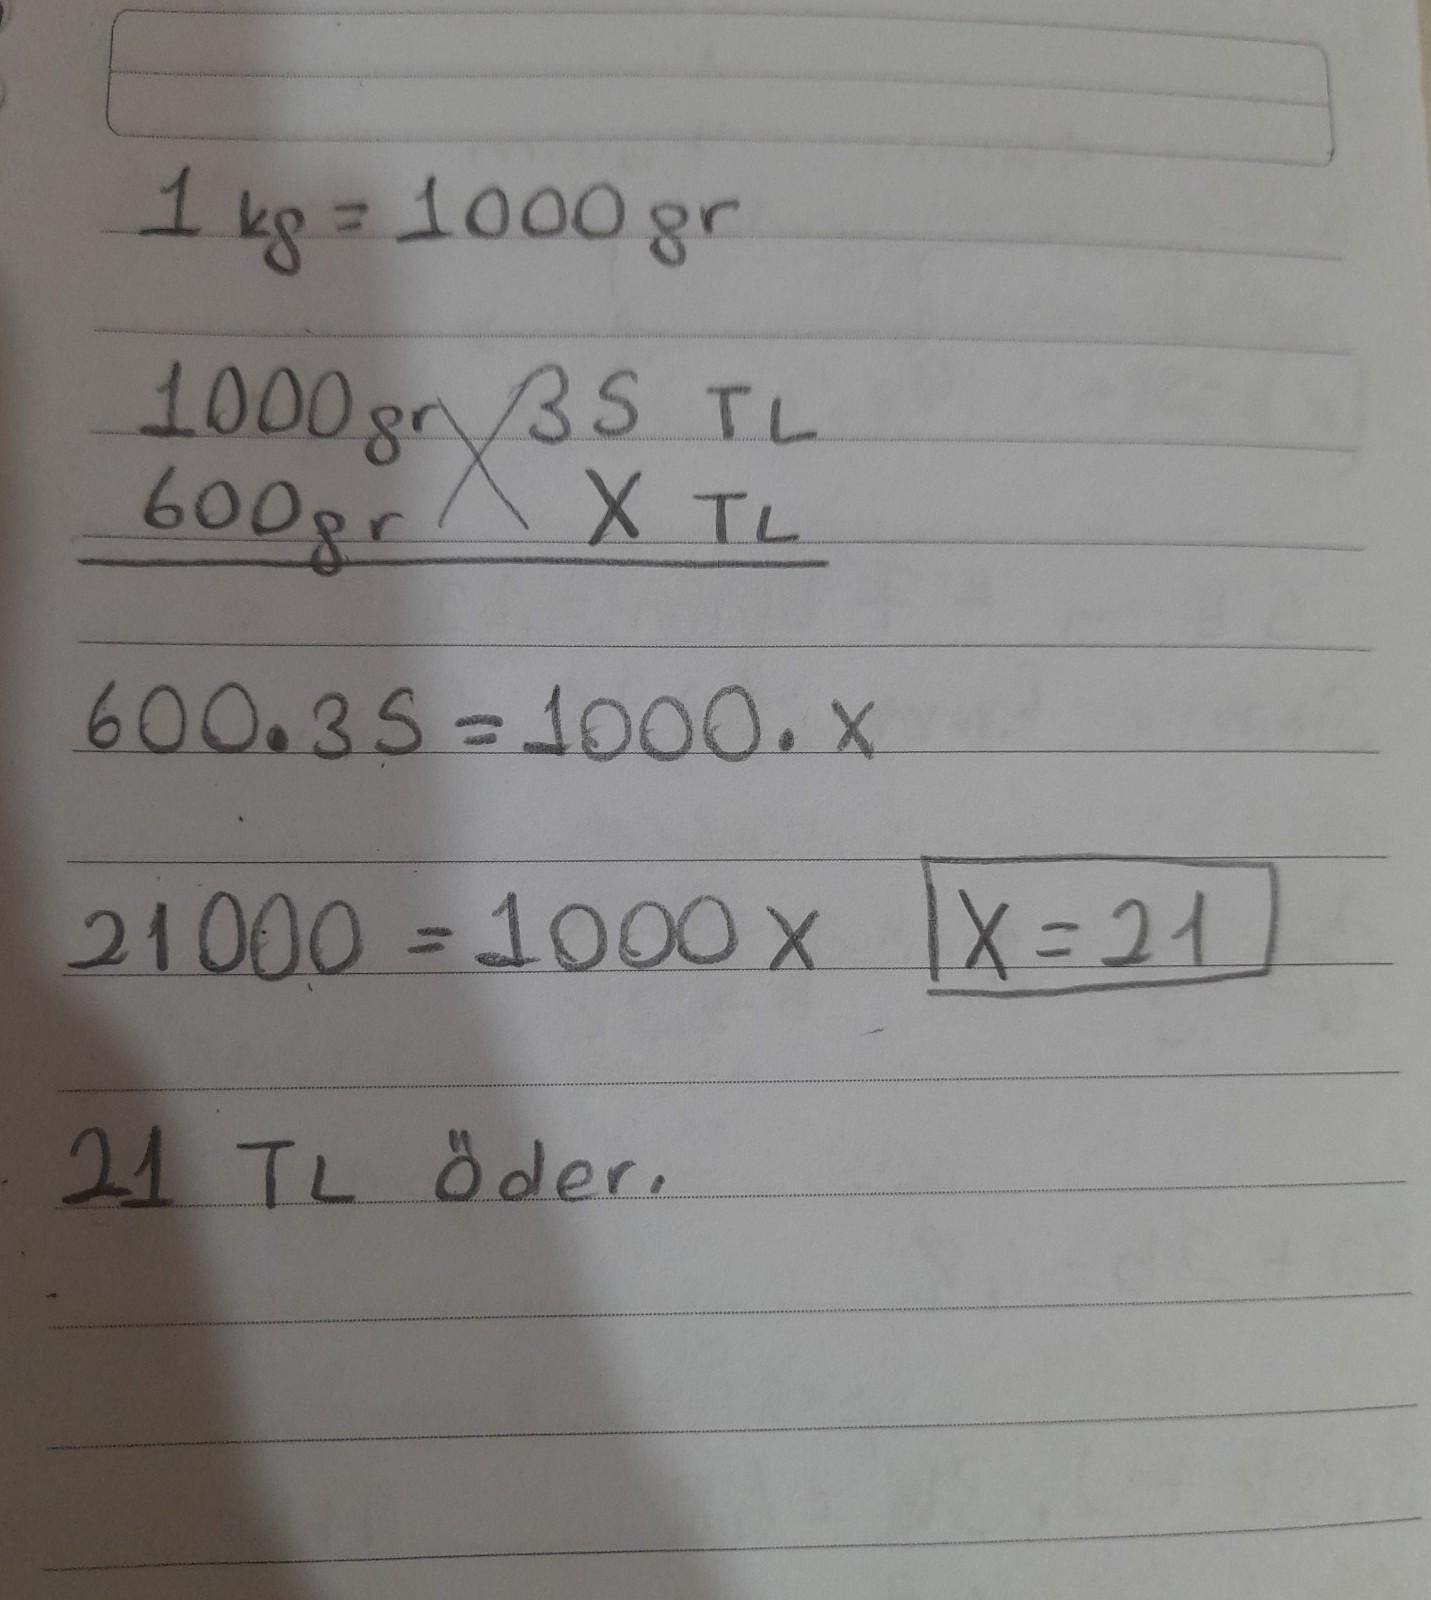 1 kg = 1000 gr
1000 gr 35 TL
600 gr X TL
600.35 = 1000.x
21000 = 1000 x X = 21
21 TL öder.